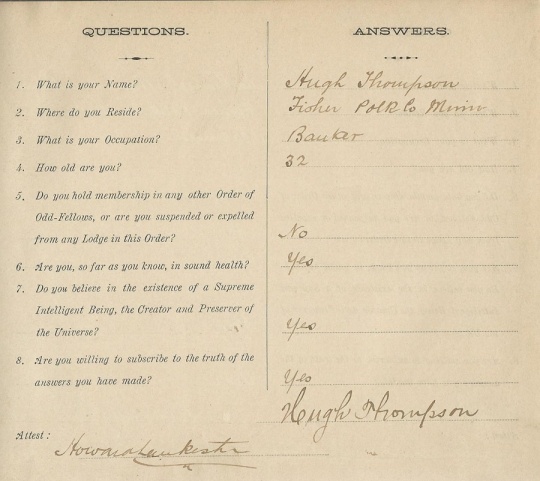 QUESTIONS.
ANSWERS.
1. What is your Name?
Hugh Thompson
2. Where do you Reside?
Fisher Polk Co Minn
3. What is your Occupation?
Banker
4. How old are you?
32
5. Do you hold membership in any other Order of
Odd-Fellows, or are you suspended or expelled
from any Lodge in this Order?
No
6. Are you, so far as you know, in sound health?
Yes
7. Do you believe in the existence of a Supreme
Intelligent Being, the Creator and Preserver of
the Universe?
Yes
8. Are you willing to subscribe to the truth of the
answers you have made?
Yes
Hugh Thompson
Attest:
Howard